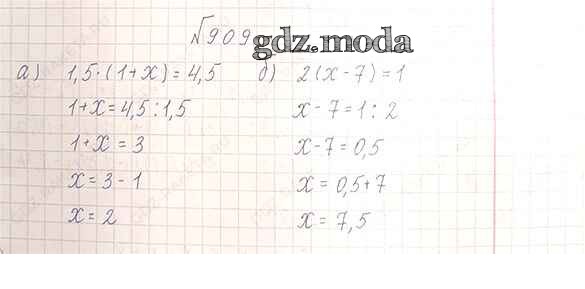 №909
gdz.moda
а) 1,5·(1+x)=4,5
1+x=4,5:1,5
1+x=3
x=3-1
x=2
б) 2(x-7)=1
x-7=1:2
x-7=0,5
x=0,5+7
x=7,5